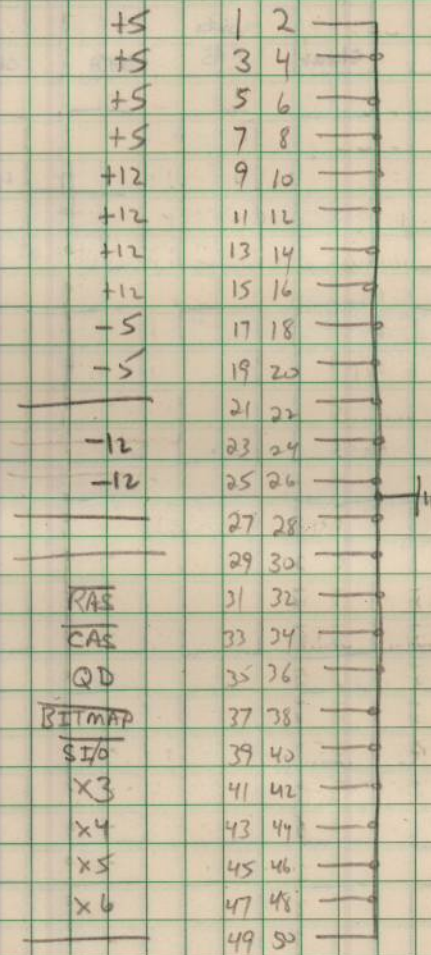 +5 1 2
+5 3 4
+5 5 6
+5 7 8
+12 9 10
+12 11 12
+12 13 14
+12 15 16
-5 17 18
-5 19 20
21 22
-12 23 24
-12 25 26
27 28
29 30
RAS 31 32
CAS 33 34
QD 35 36
BITMAP 37 38
SI/O 39 40
X3 41 42
X4 43 44
X5 45 46
X6 47 48
49 50